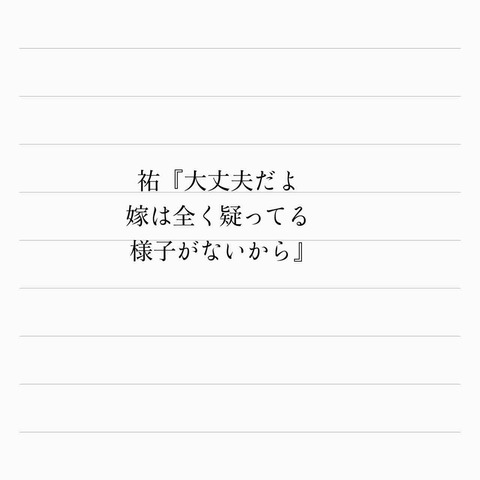 祐『大丈夫だよ
嫁は全く疑ってる
様子がないから』